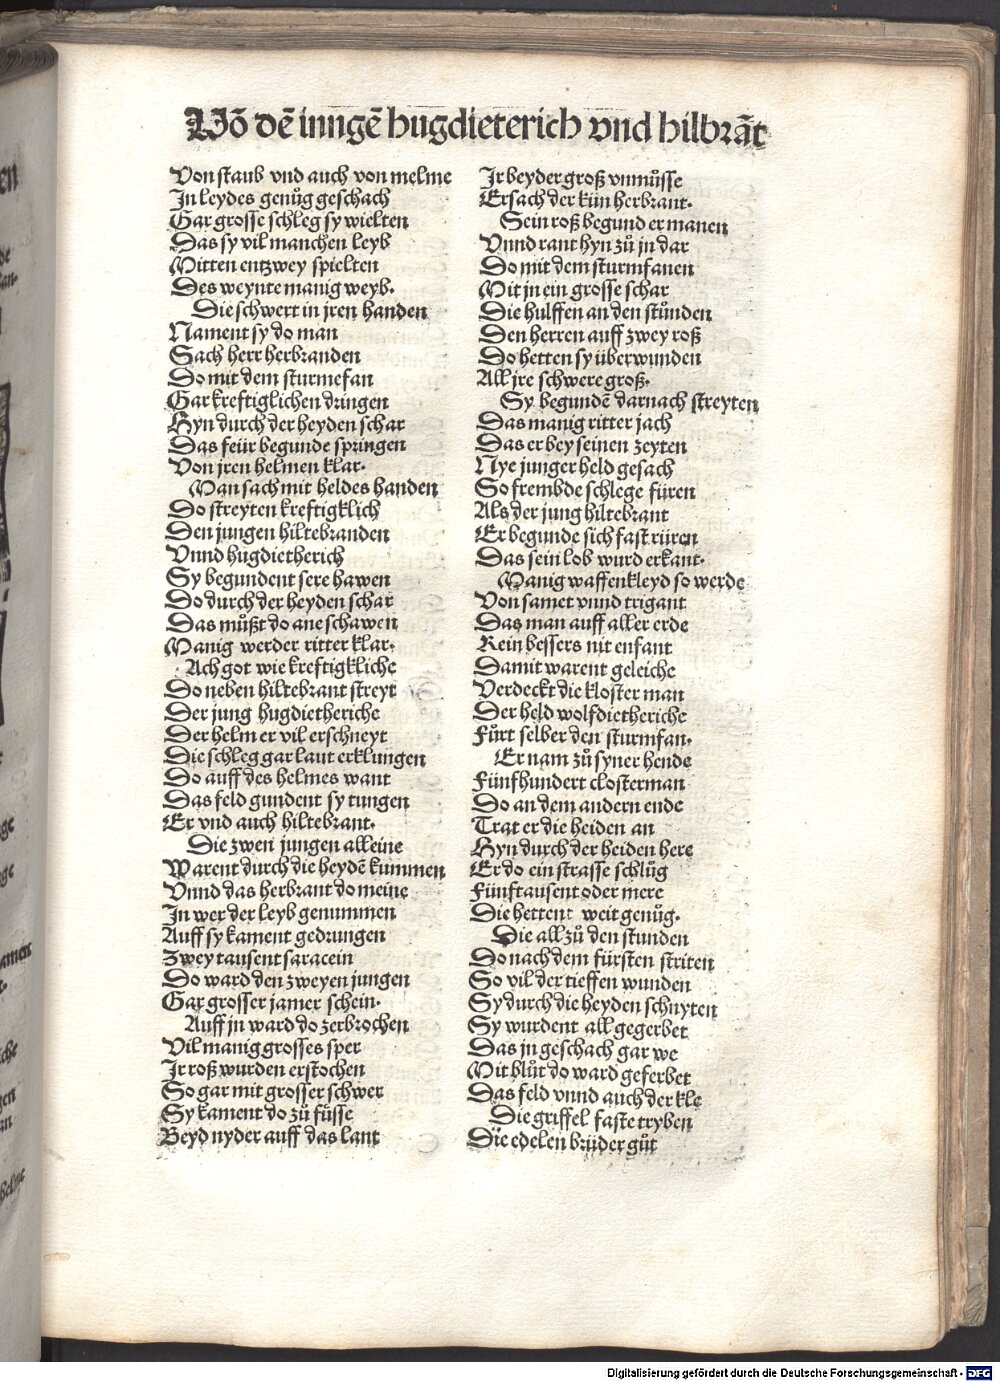 Võ dẽ iungẽ hugdieterich vnd hilbrãt
Von staub vnd auch von melme
Jn leydes genůg geschach
Gar grosse schleg sy wielten
Das sy vil manchen leyb
Mitten entzwey spielten
Des weynte manig weyb.
Die schwert in jren handen
Nament sy do man
Sach herr herbranden
Do mit dem sturmefan
Gar kreftiglichen dringen
Hyn durch der heyden schar
Das feür begunde springen
Von jren helmen klar.
Man sach mit heldes handen
Do streyten kreftigklich
Den jungen hiltebranden
Vnnd hugdietherich
Sy begundent sere hawen
Do durch der heyden schar
Das můßt do ane schawen
Manig werder ritter klar.
Ach got wie kreftigkliche
Do neben hiltebrant streyt
Der jung hugdietheriche
Der helm er vil erschneyt
Die schleg gar laut erklungen
Do auff des helmes want
Das feld gundent sy tungen
Er vnd auch hiltebrant.
Die zwen jungen alleine
Warent durch die heydẽ kummen
Vnnd das herbrant do meine
Jn wer der leyb genummen
Auff sy kament gedrungen
Zwey tausent saracein
Do ward den zweyen jungen
Gar grosser jamer schein.
Auff jn ward do zerbrochen
Vil manig grosses sper
Jr roß wurden erstochen
So gar mit grosser schwer
Sy kament do zů fůsse
Beyd nyder auff das lant
Jr beyder groß vnmůsse
Ersach der kün herbrant.
Sein roß begund er manen
Vnnd rant hyn zů jn dar
Do mit dem sturmfanen
Mit jn ein grosse schar
Die hulffen an den stůnden
Den herren auff zwey roß
Do hetten sy überwunden
All jre schwere groß.
Sy begundẽ darnach streyten
Das manig ritter jach
Das er bey seinen zeyten
Nye junger held gesach
So frembde schlege füren
Als der jung hiltebrant
Er begunde sich fast rüren
Das sein lob wurd erkant.
Manig waffenkleyd so werde
Von samet vnnd trigant
Das man auff aller erde
Kein bessers nit enfant
Damit warent geleiche
Verdeckt die kloster man
Der held wolfdietheriche
Fůrt selber den sturmfan.
Er nam zů syner hende
Fünfhundert closterman
Do an dem andern ende
Trat er die heiden an
Hyn durch der heiden here
Er do ein strasse schlůg
Fünftausent oder mere
Die hettent weit genůg.
Die all zů den stunden
Do nach dem fürsten striten
So vil der tieffen wunden
Sy durch die heyden schnyten
Sy wurdent all gegerbet
Das jn geschach gar we
Mit blůt do ward geferbet
Das feld vnnd auch der kle
Die griffel faste tryben
Die edelen brüder gůt
Digitalisierung gefördert durch die Deutsche Forschungsgemeinschaft - DFG